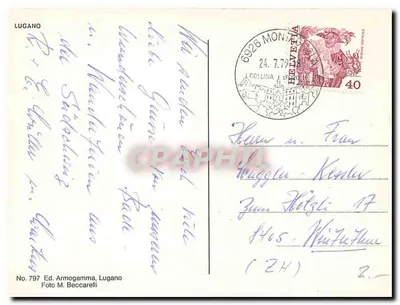 LUGANO
Wir senden Euch viele
liebe Grüsse von unseren
wunderschönen Bade-
u. Wanderferien aus
der Südschweiz
R. + E.
6926 MONTAGNOLA
24. 7. 79 - 18
COLLINA
HELVETIA
40
CPAPHIL
Herrn u. Frau
Wuggler - Kessler
Zum Hölzli 17
8405 - Winterthur
(ZH)
2.-
No. 797 Ed. Armogamma, Lugano
Foto M. Beccarelli